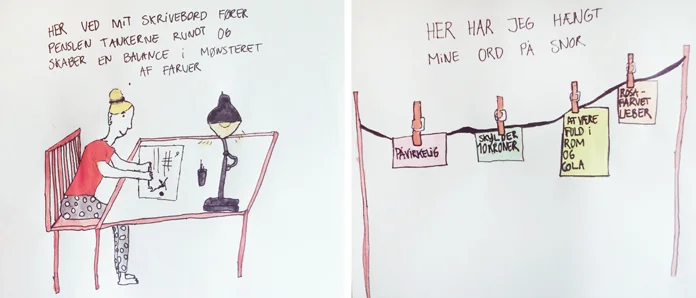 HER VED MIT SKRIVEBORD FØRER
PENSLEN TANKERNE RUNDT OG
SKABER EN BALANCE i MØNSTERET
AF FARVER
HER HAR JEG HÆNGT
MINE ORD PÅ SNOR
PÅVIRKELIG
SKYLDER
10 KRONER
AT VÆRE
FULD i
ROM
OG
COLA
ROSA-
FARVET
LÆBER